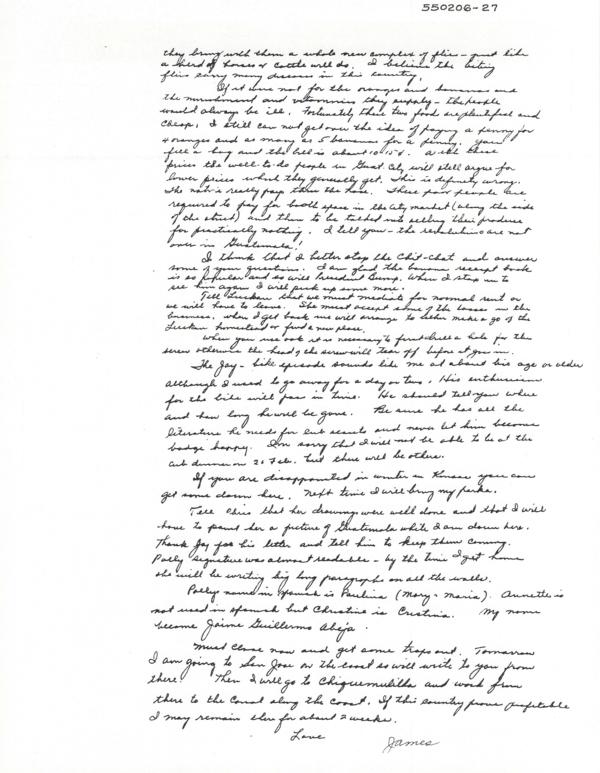 550206-27
they bring with them a whole new complex of flies - just like
a herd of horses or cattle will do. I believe the biting
flies carry many diseases in this country.
If it were not for the oranges and bananas and
the nourishment and vitamins they supply - the people
would always be ill. Fortunately these two foods are plentiful and
cheap. I still can not get over the idea of paying a penny for
4 oranges and as many as 5 bananas for a penny. You
fill a bag and the bill is about 10-15¢. At these
prices the well-to-do people in Guat. City will still argue for
lower prices which they generally get. This is definitely wrong.
The native really pays thru the nose. These poor people are
required to pay for booth space in the city market (along the side
of the street) and then to be talked into selling their produce
for practically nothing. I tell you - the revolutions are not
over in Guatemala!
I think that I better stop the chit-chat and answer
some of your questions. I am glad the banana receipt book
is so popular and so will President Bump. When I stop in to
see him again I will pick up some more.
Tell that we must mediate for normal rent or
we will have to leave. She must accept some of the losses in the
business. When I get back we will arrange to either make a go of the
homestead or find a new place.
When you use oak it is necessary to first drill a hole for the
screw otherwise the head of the screw will tear off before it goes in.
The Jay-bike episode sounds like me at about his age or older
although I used to go away for a day or two. His enthusiasm
for the bike will pass in time. He should tell you where
and how long he will be gone. Be sure he has all the
literature he needs for cub scouts and never let him become
badge happy. I'm sorry that I will not be able to be at the
cub dinner on 26 Feb. but there will be others.
If you are disappointed in winter in Kansas you can
get some down here. Next time I will bring my parka.
Tell Chris that her drawings were well done and that I will
have to paint her a picture of Guatemala while I am down here.
Thank Jay for his letter and tell him to keep them coming.
Polly signature was almost readable - by the time I get home
she will be writing big long paragraphs on all the walls.
Pollys name in spanish is Paulina (Mary - Maria). Annette is
not used in spanish but Christine is Cristina. My name
become Jaime Guillermo Abeja.
Must close now and get some traps out. Tomorrow
I am going to San Jose on the coast so will write to you from
there. Then I will go to Chiquimulilla and work from
there to the canal along the coast. If this country prove profitable
I may remain there for about 2 weeks.
Love
James